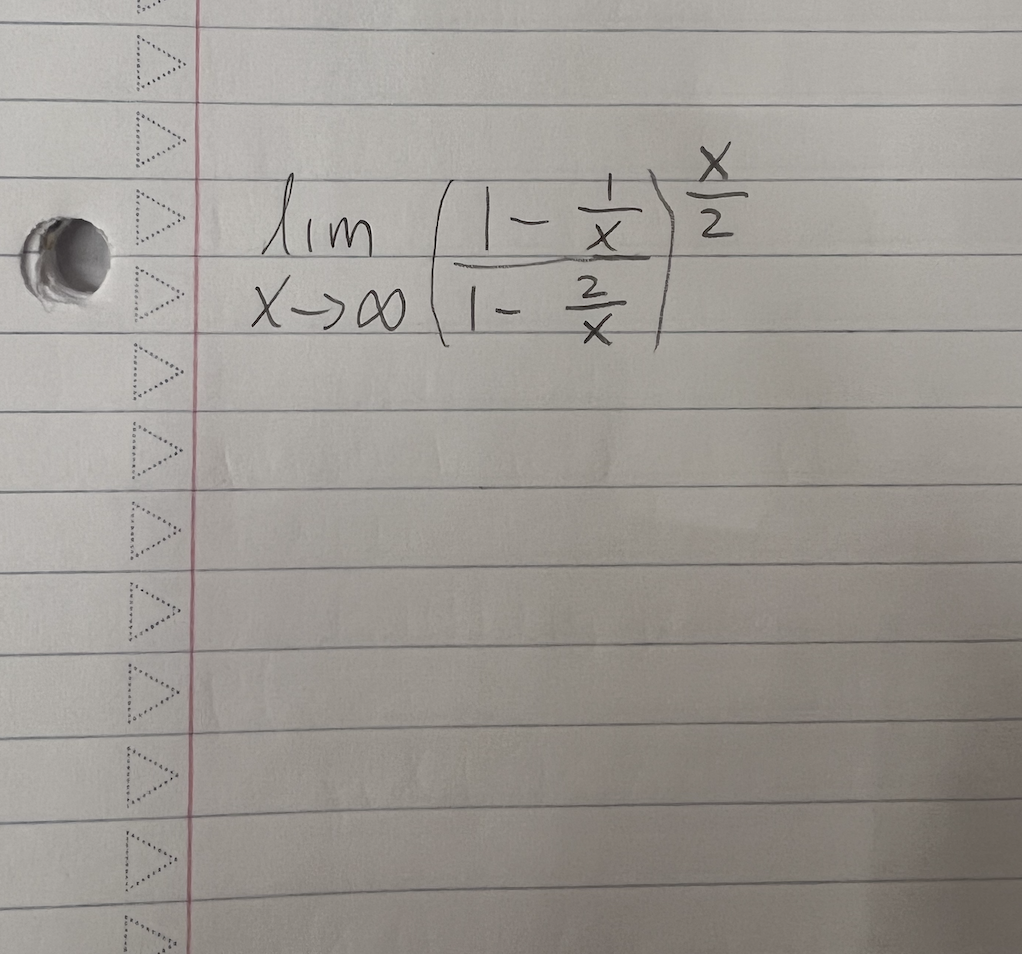 lim x→∞ ((1 - 1/x)/(1 - 2/x))^(x/2)